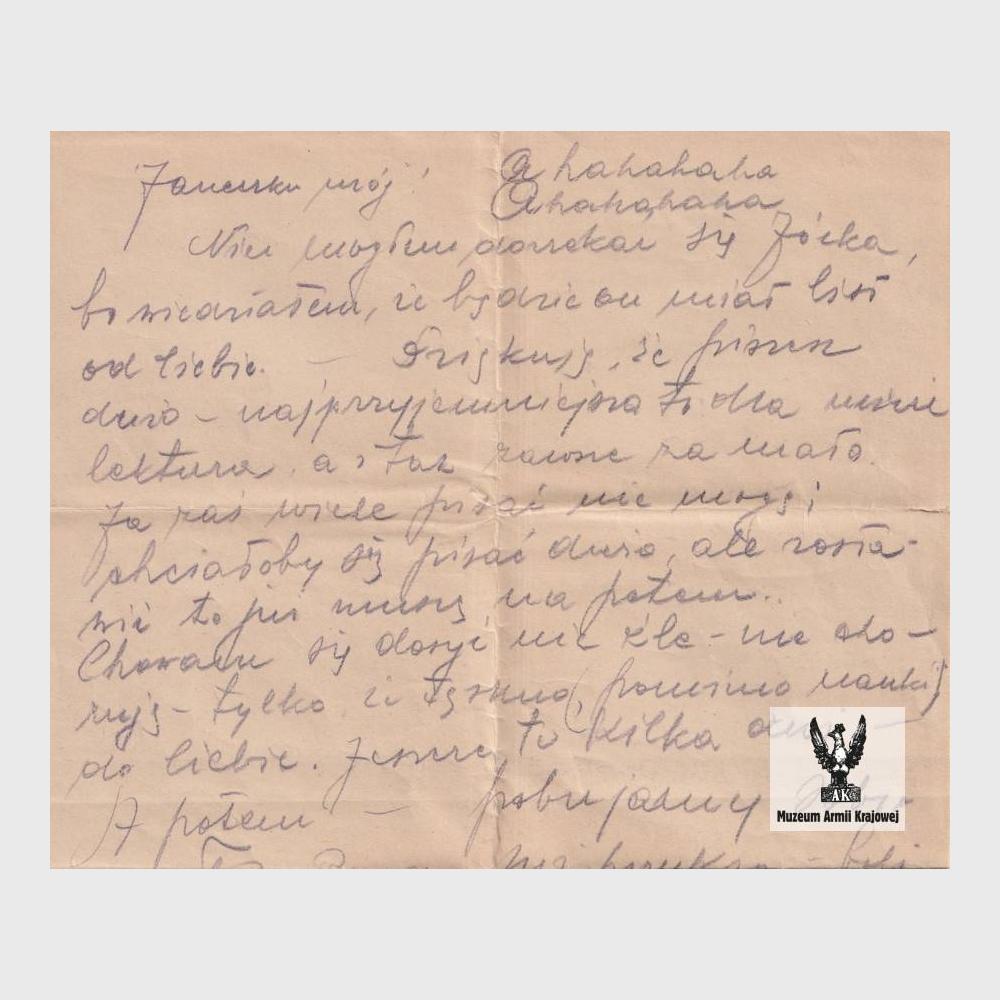 Janeczku mój!
Ahahahaha
Ahahahaha
Nie mogłem doczekać się Józka,
bo wiedziałem, że będzie on miał list
od Ciebie. — Dziękuję, że piszesz
dużo – najprzyjemniejsza to dla mnie
lektura, a i tak zawsze za mało.
Ja zaś wiele pisać nie mogę;
chciałoby się pisać dużo, ale zosta-
wić to już muszę na potem.
Chowam się dosyć nie źle – nie cho-
ruję – tylko, że tęskno (pomimo nauki)
do Ciebie. Jeszcze tu kilka dni –
A potem — pobujamy
AK
Muzeum Armii Krajowej